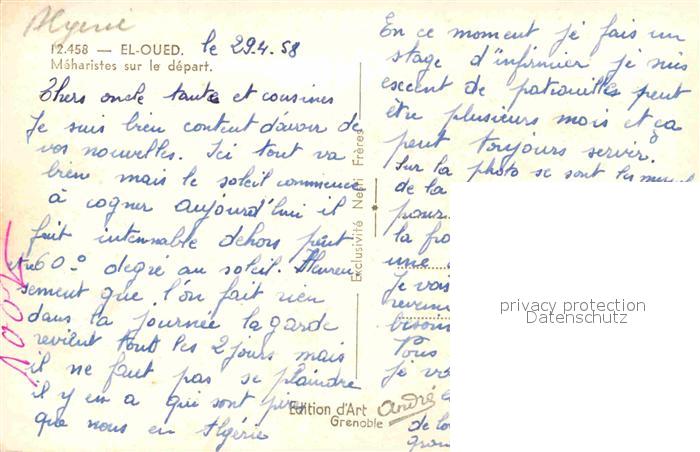 Algerie
12.458 — EL-OUED.
Méharistes sur le départ.
le 29.4.58
Chers oncle tante et cousines
Je suis bien content d'avoir de
vos nouvelles. Ici tout va
bien mais le soleil commence
à cogner aujourd'hui il
fait intennable dehors peut
etre 60° degré au soleil. Heureu-
sement que l'on fait rien
dans la journée la garde
revient tout les 2 jours mais
il ne faut pas se plaindre
il y en a qui sont pire
que nous en Algérie
1007
Exclusivité Nesri Frères
Edition d'Art
Grenoble
En ce moment je fais un
stage d'infirmier je suis
escent de patrouilles peut
être plusieurs mois et ça
peut toujours servir.
Sur la photo se sont les
de la
pour
la
une
Je vais
revenir
bison
Tous
Je
André
de
privacy protection
Datenschutz